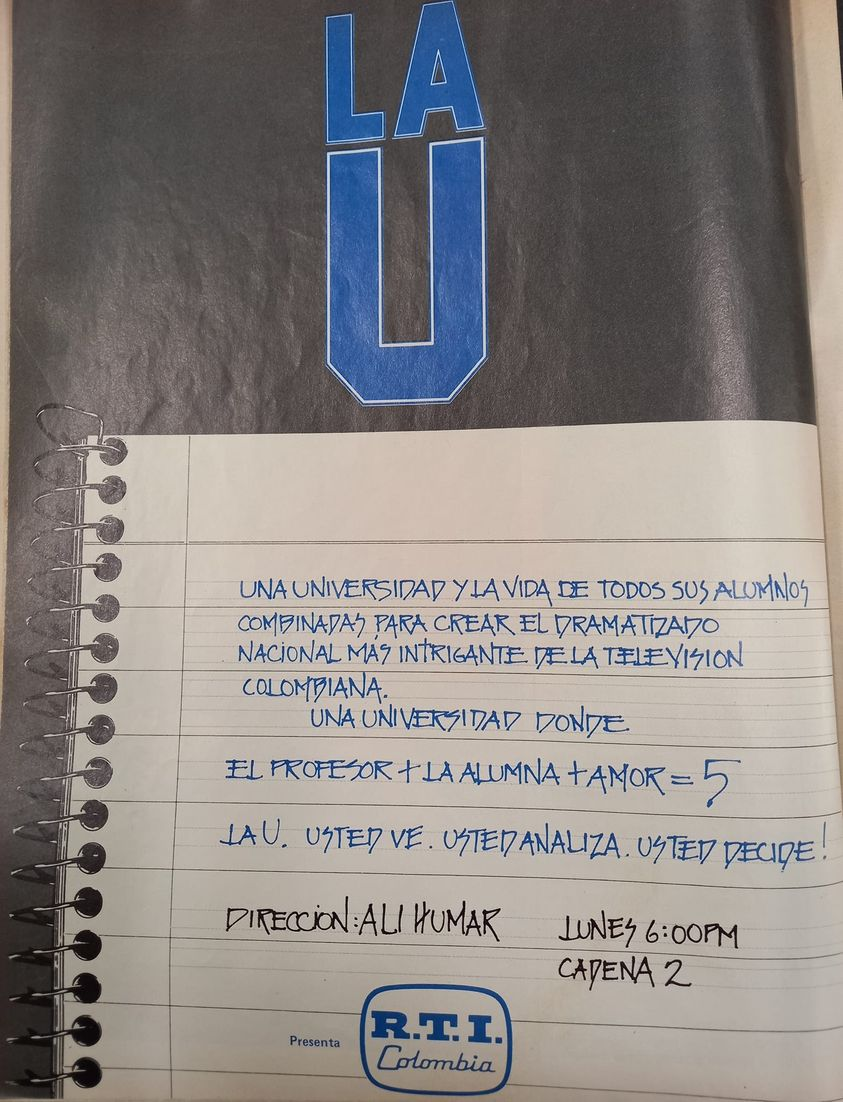 LA
U
UNA UNIVERSIDAD Y LA VIDA DE TODOS SUS ALUMNOS
COMBINADAS PARA CREAR EL DRAMATIZADO
NACIONAL MÁS INTRIGANTE DE LA TELEVISION
COLOMBIANA.
UNA UNIVERSIDAD DONDE
EL PROFESOR + LA ALUMNA + AMOR = 5
LA U. USTED VE. USTED ANALIZA. USTED DECIDE!
DIRECCION: ALI HUMAR
LUNES 6:00PM
CADENA 2
Presenta
R.T.I.
Colombia